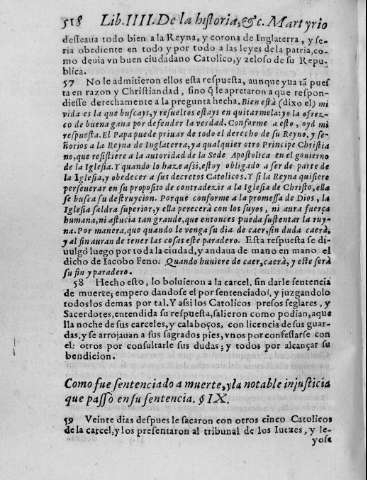 518 Lib. IIII. De la historia, &c. Martyrio
desseaua todo bien a la Reyna, y corona de Inglaterra, y se-
ria obediente en todo y por todo a las leyes de la patria, co-
mo deuia vn buen ciudadano Catolico, y zeloso de su Repu-
blica.
57 No le admitieron esta respuesta, aunque yua tã pues
ta en razon y Christiandad, sino q̃ le apretaron a que respon-
diesse derechamente a la pregunta hecha. Bien està (dixo el) mi
vida es la que buscays, y resueltos estays en quitarmela: yo la ofrez-
co de buena gana por defender la verdad. Conforme a esto, oyd mi
respuesta. El Papa puede priuar de todo el derecho de su Reyno, y se-
ñorios a la Reyna de Inglaterra, ya qualquier otro Principe Christia
no, que resistiere a la autoridad de la Sede Apostolica en el gouierno
de la Iglesia. Y quando lo haze assi, estoy obligado a ser de parte de
la Iglesia, y obedecer a sus decretos Catolicos. Y si la Reyna quisiere
perseuerar en su proposito de contradezir a la Iglesia de Christo, ella
se busca su destruycion. Porque conforme a la promessa de Dios, la
Iglesia saldra superior, y ella perecerà con los suyos, ni aura fuerça
humana, ni astucia tan grande, que entonces pueda sustentar la ruy-
na. Por manera, que quando le venga su dia de caer, sin duda caerà,
y al sin auran de tener las cosas este paradero. Esta respuesta se di-
uulgò luego por toda la ciudad, y andaua de mano en mano el
dicho de Iacobo Feno. Quando huuiere de caer, caerà, y este serà
su fin y paradero.
58 Hecho esto, lo boluieron a la carcel, sin darle sentencia
de muerte, empero dandose el por sentenciado, y juzgandolo
todos los demas por tal. Y assi los Catolicos presos seglares, y
Sacerdotes, entendida su respuesta, salieron como podian, aque
lla noche de sus carceles, y calaboços, con licencia de sus guar-
das, y se arrojauan a sus sagrados pies, vnos por confessarse con
el: otros por consultarle sus dudas; y todos por alcançar su
bendicion.
Como fue sentenciado a muerte, y la notable injusticia
que passò en su sentencia. § IX.
59 Veinte dias despues le sacaron con otros cinco Catolicos
de la carcel, y los presentaron al tribunal de los Iuezes, y le-
yose